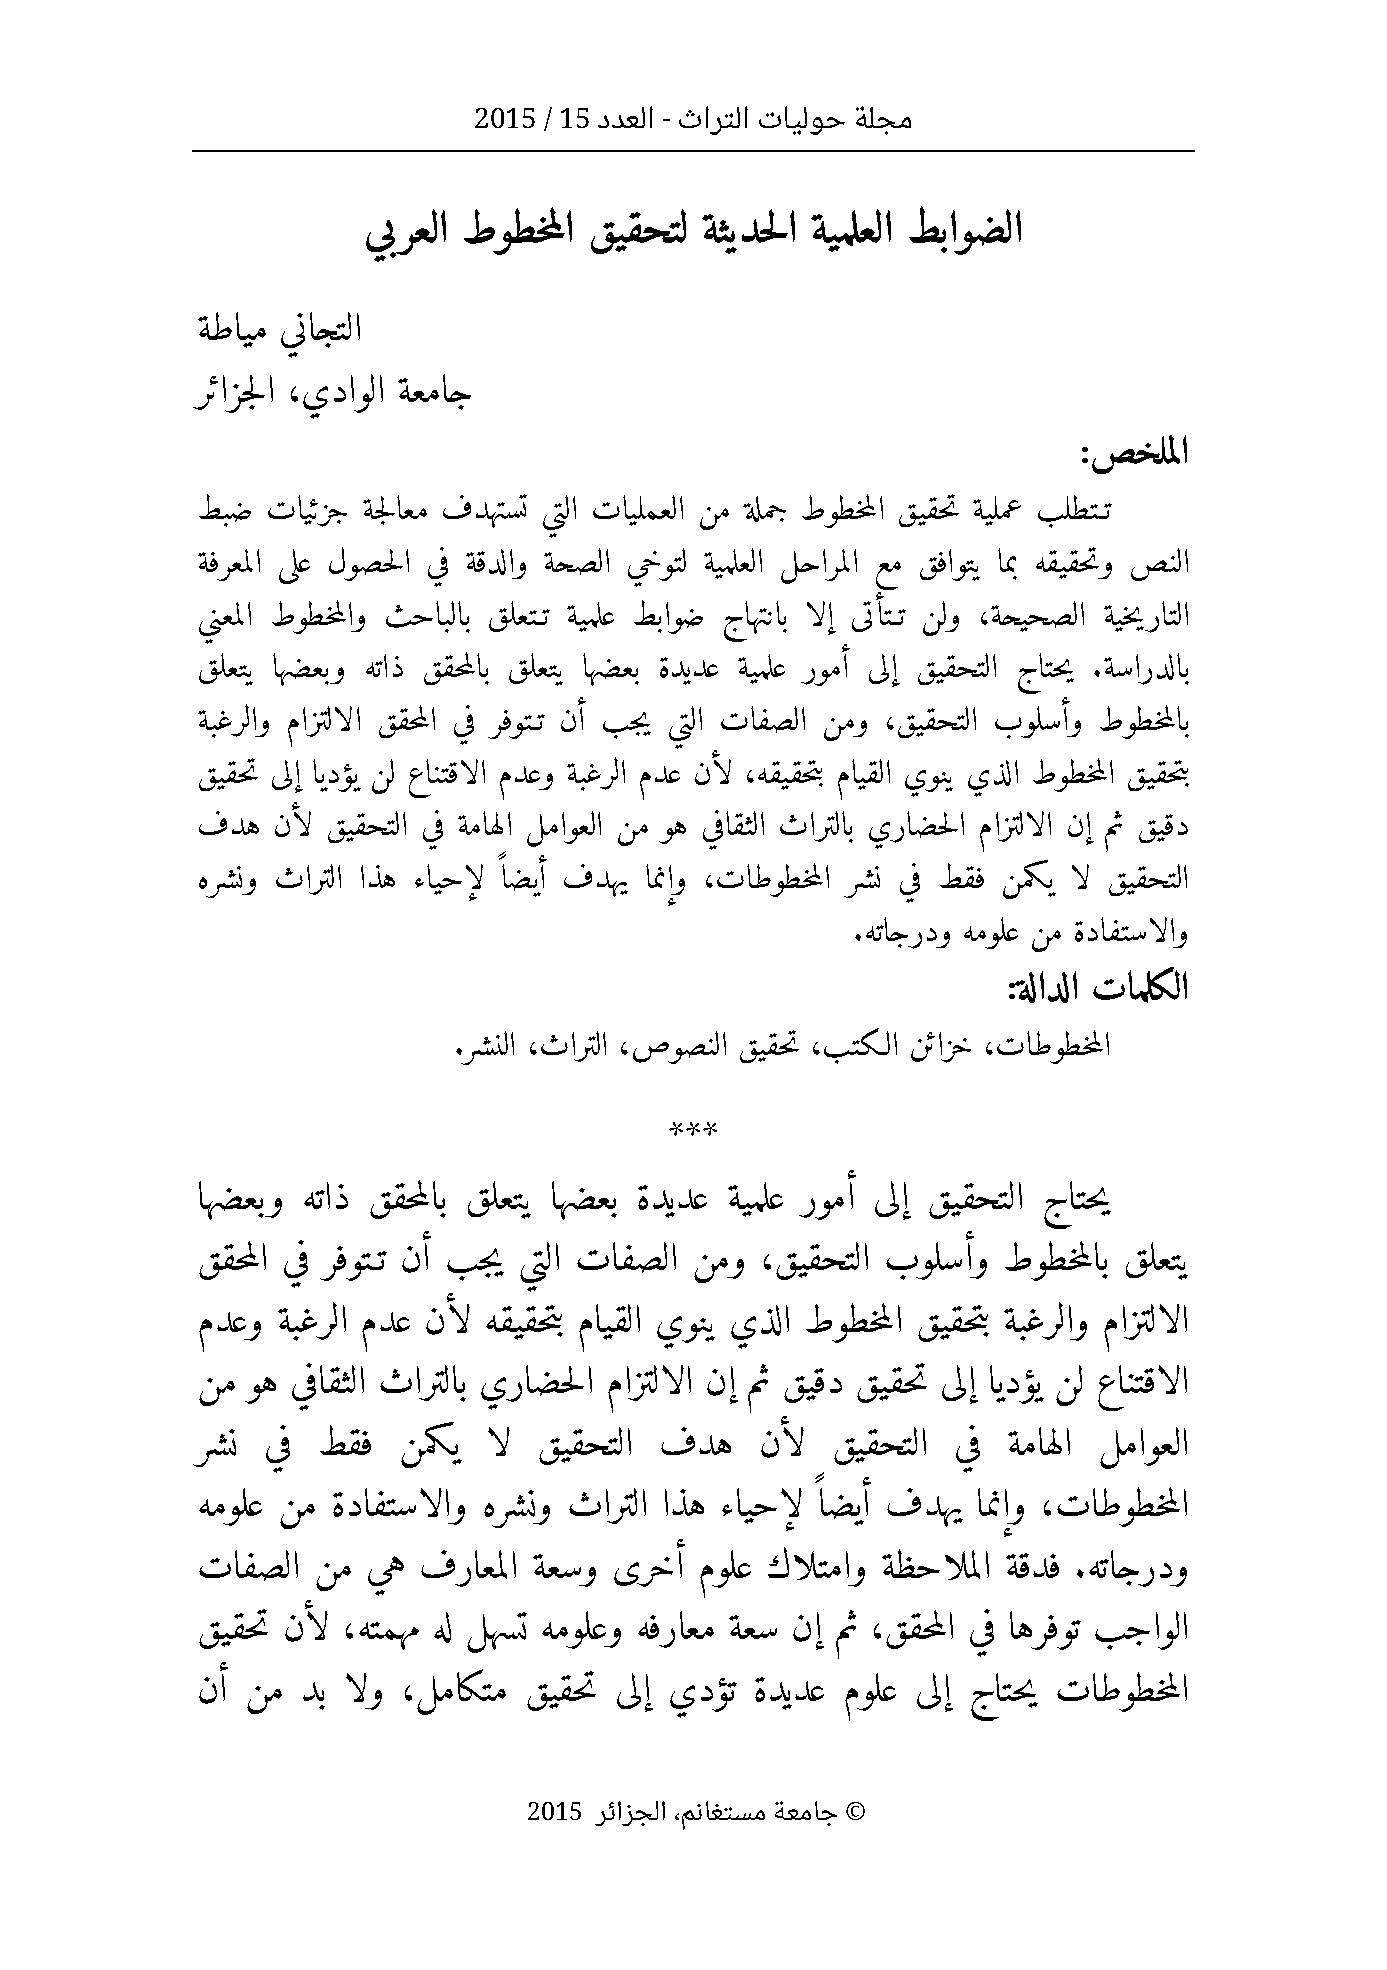 مجلة حوليات التراث - العدد 15 / 2015
الضوابط العلمية الحديثة لتحقيق المخطوط العربي
التجاني مياطة
جامعة الوادي، الجزائر
الملخص:
تتطلب عملية تحقيق المخطوط جملة من العمليات التي تستهدف معالجة جزئيات ضبط
النص وتحقيقه بما يتوافق مع المراحل العلمية لتوخي الصحة والدقة في الحصول على المعرفة
التاريخية الصحيحة، ولن تتأتى إلا بانتهاج ضوابط علمية تتعلق بالباحث والمخطوط المعني
بالدراسة. يحتاج التحقيق إلى أمور علمية عديدة بعضها يتعلق بالمحقق ذاته وبعضها يتعلق
بالمخطوط وأسلوب التحقيق، ومن الصفات التي يجب أن تتوفر في المحقق الالتزام والرغبة
بتحقيق المخطوط الذي ينوي القيام بتحقيقه، لأن عدم الرغبة وعدم الاقتناع لن يؤديا إلى تحقيق
دقيق ثم إن الالتزام الحضاري بالتراث الثقافي هو من العوامل الهامة في التحقيق لأن هدف
التحقيق لا يكمن فقط في نشر المخطوطات، وإنما يهدف أيضاً لإحياء هذا التراث ونشره
والاستفادة من علومه ودرجاته.
الكلمات الدالة:
المخطوطات، خزائن الكتب، تحقيق النصوص، التراث، النشر.
***
يحتاج التحقيق إلى أمور علمية عديدة بعضها يتعلق بالمحقق ذاته وبعضها
يتعلق بالمخطوط وأسلوب التحقيق، ومن الصفات التي يجب أن تتوفر في المحقق
الالتزام والرغبة بتحقيق المخطوط الذي ينوي القيام بتحقيقه لأن عدم الرغبة وعدم
الاقتناع لن يؤديا إلى تحقيق دقيق ثم إن الالتزام الحضاري بالتراث الثقافي هو من
العوامل الهامة في التحقيق لأن هدف التحقيق لا يكمن فقط في نشر
المخطوطات، وإنما يهدف أيضاً لإحياء هذا التراث ونشره والاستفادة من علومه
ودرجاته. فدقة الملاحظة وامتلاك علوم أخرى وسعة المعارف هي من الصفات
الواجب توفرها في المحقق، ثم إن سعة معارفه وعلومه تسهل له مهمته، لأن تحقيق
المخطوطات يحتاج إلى علوم عديدة تؤدي إلى تحقيق متكامل، ولا بد من أن
© جامعة مستغانم، الجزائر 2015